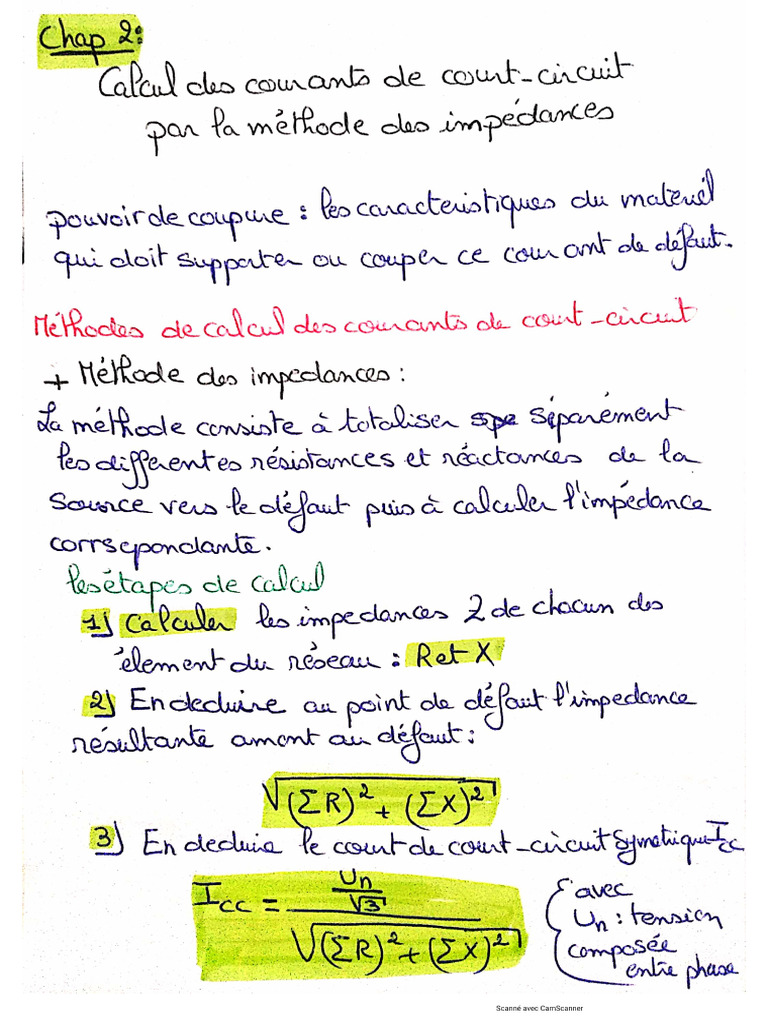 Chap 2:
Calcul des courants de court-circuit
par la méthode des impédances
pouvoir de coupure : les caracteristiques du matériél
qui doit supporter ou couper ce courant de défaut.
Méthodes de calcul des courants de court-circuit
+ Méthode des impedances :
La méthode consiste à totaliser spe séparément
les differentes résistances et réactances de la
source vers le défaut puis à calculer l'impédance
corrsepondante.
les étapes de calcul
1) Calculer les impedances Z de chacun des
élement du réseau : R et X
2) En deduire au point de défaut l'impedance
résultante amont au défaut :
√(ΣR)² + (ΣX)²
3) En deduire le court de court-circuit symetrique Icc
Icc = (Un/√3) / √(ΣR)² + (ΣX)²
avec
Un : tension
composée
entre phase
Scanné avec CamScanner